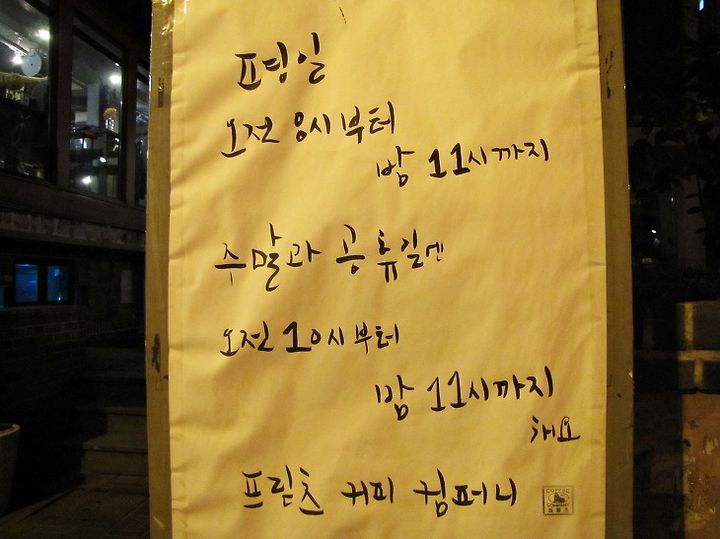 평일
오전 8시부터
밤 11시까지
주말과 공휴일엔
오전 10시부터
밤 11시까지
해요
프릳츠 커피 컴퍼니
COFFEE
COMPANY